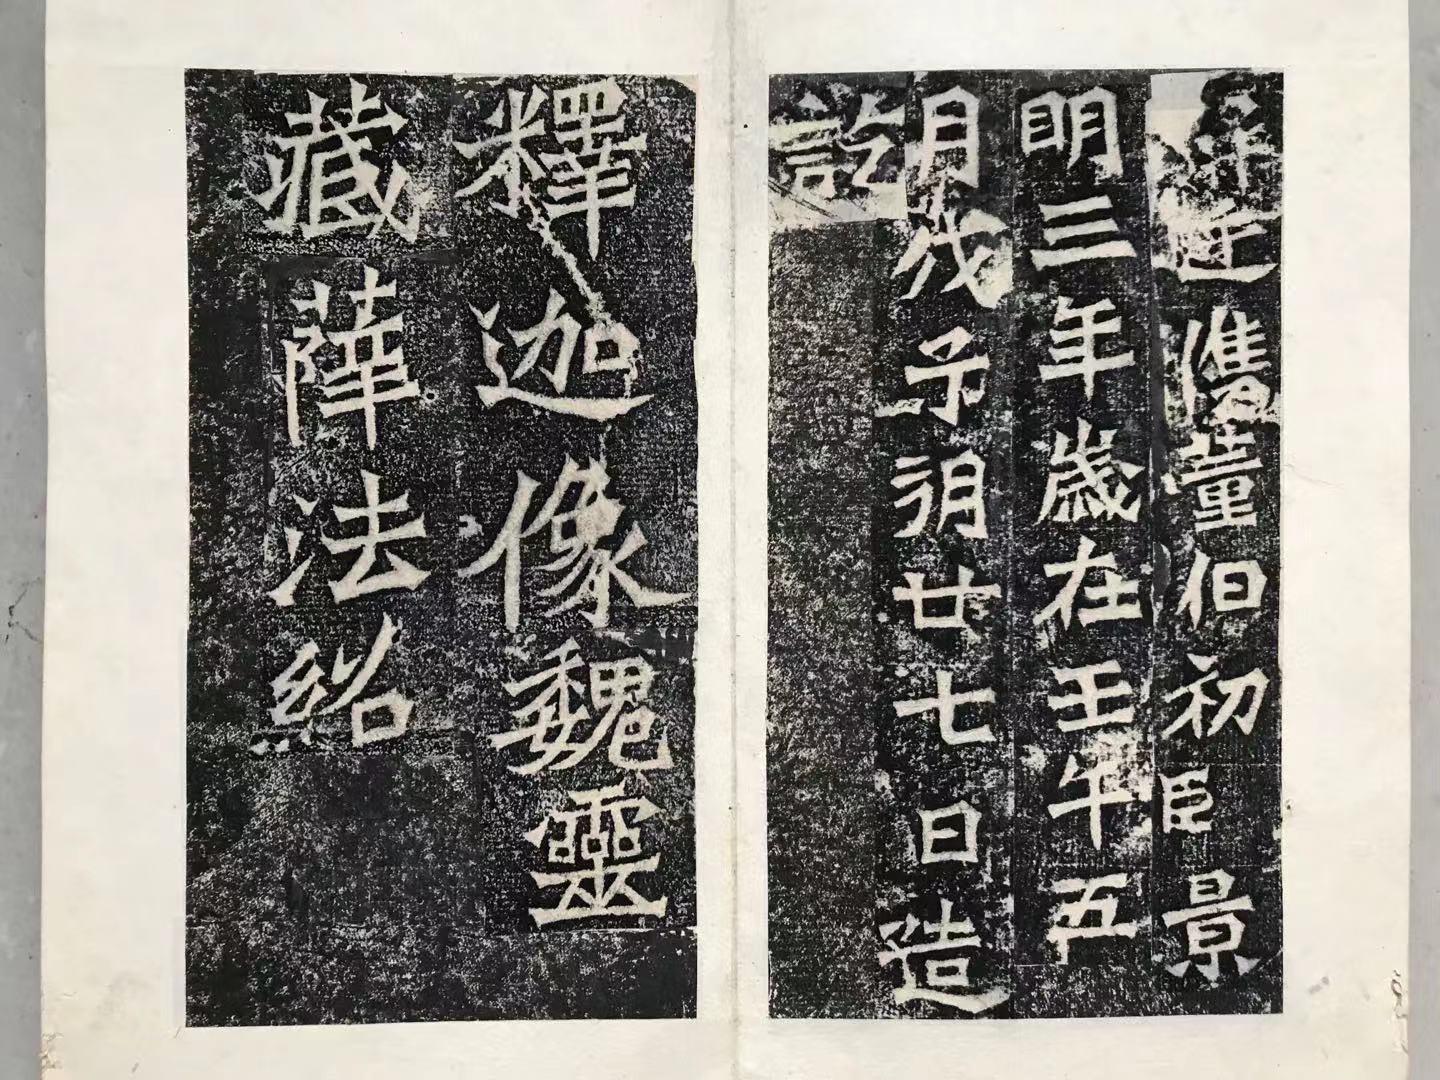 儁董伯初臣景
明三年歲在壬午五
月戊子朔廿七日造
訖
釋迦像魏靈
藏薛法紹